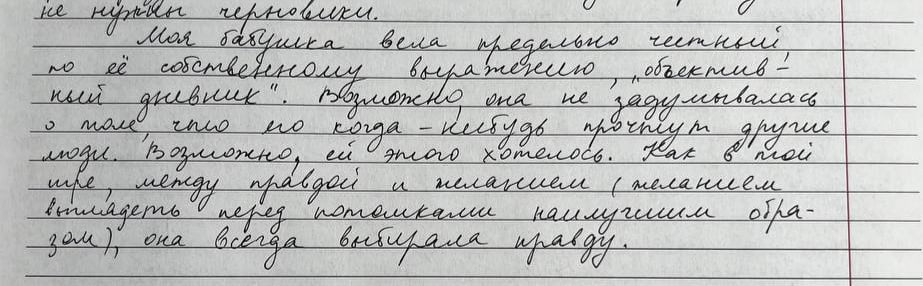 не нужны черновики.
Моя бабушка вела предельно честный,
по её собственному выражению, „объектив-
ный дневник“. Возможно, она не задумывалась
о том, что его когда-нибудь прочтут другие
люди. Возможно, ей этого хотелось. Как в той
игре, между правдой и желанием (желанием
выглядеть перед потомками наилучшим обра-
зом), она всегда выбирала правду.